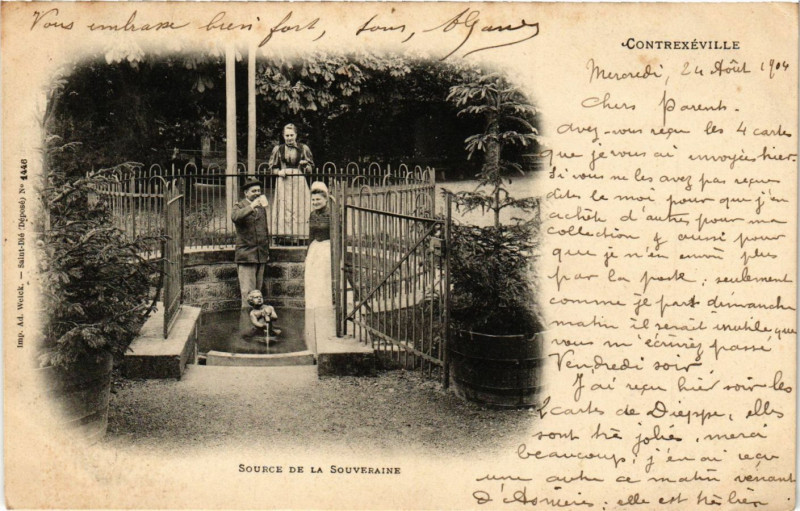 Vous embrasse bien fort,
CONTREXÉVILLE
Mercredi, 24 Août 1904
Chers Parents.
avez-vous reçu les 4 cartes
que je vous ai envoyées hier.
Si vous ne les avez pas reçues
dites le moi pour que j'en
achète d'autres pour ma
collection & aussi pour
que je n'en envoie plus
par la poste; seulement
comme je pars dimanche
matin il serait inutile que
vous m'écriviez passé
Vendredi soir.
J'ai reçu hier soir les
2 cartes de Dieppe, elles
sont très jolies, merci
beaucoup; j'en ai reçu
une autre ce matin venant
d'Asnières; elle est très bien
Imp. Ad. Weick. — Saint-Dié (Déposé) No 1446
SOURCE DE LA SOUVERAINE